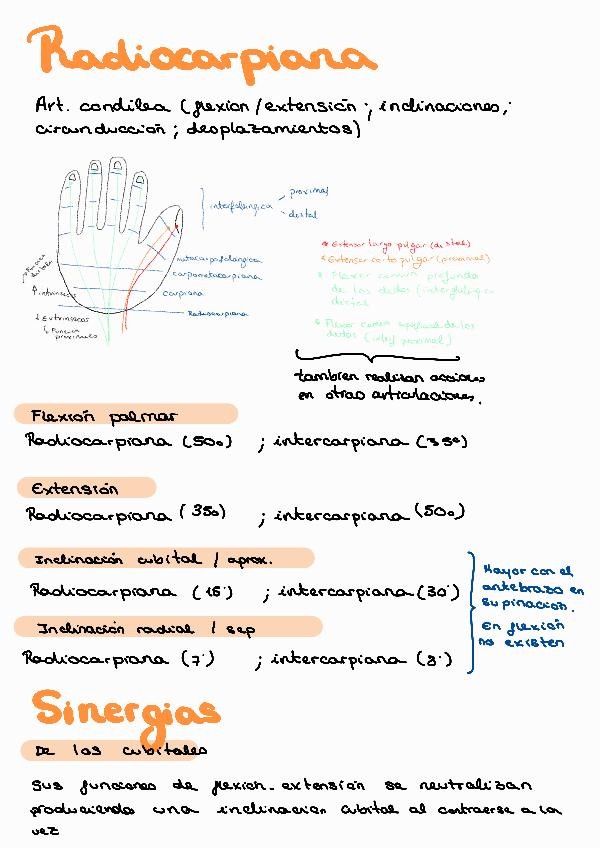 Radiocarpiana
Art. condilea (flexion/extensión; inclinaciones;
circunducción; desplazamientos)
interfalángica
proximal
distal
metacarpofalángica
carpometacarpiana
carpiana
Radiocarpiana
↑ intrínsecos
↓ Extrínsecos
↳ Función
proximales
* Extensor largo pulgar (distal)
* Extensor corto pulgar (proximal)
* Flexor común profundo
de los dedos (interfalángica
distal
* Flexor común superficial de los
dedos (interf proximal)
tambien realizan acciones
en otras articulaciones.
Flexión palmar
Radiocarpiana (50º) ; intercarpiana (35º)
Extensión
Radiocarpiana (35º) ; intercarpiana (50º)
Inclinación cubital / aprox.
Radiocarpiana (15º) ; intercarpiana (30º)
Inclinación radial / sep
Radiocarpiana (7º) ; intercarpiana (8º)
Mayor con el
antebrazo en
supinación.
En flexión
no existen
Sinergias
De los cubitales
Sus funciones de flexion-extensión se neutralizan
produciendo una inclinacion cubital al contraerse a la
vez